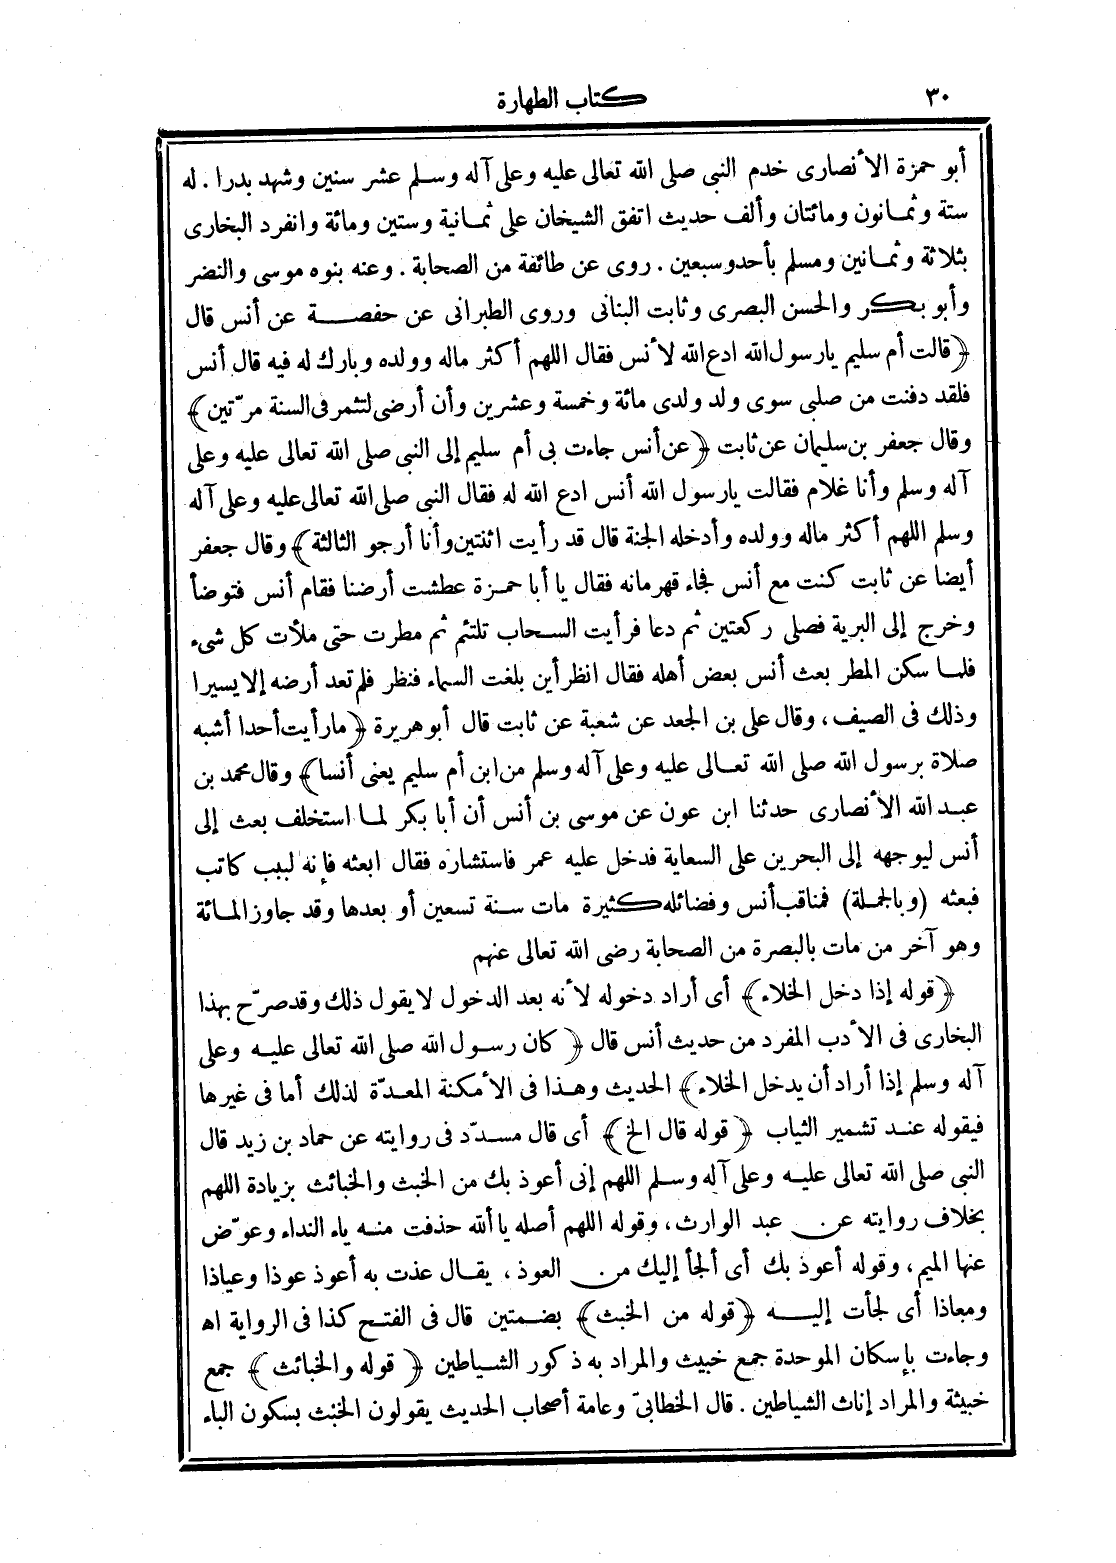 ٣٠
كتاب الطهارة
أبو حمزة الأنصارى خدم النبى صلى الله تعالى عليه وعلى آله وسلم عشر سنين وشهد بدرا . له
ستة وثمانون ومائتان وألف حديث اتفق الشيخان على ثمانية وستين ومائة وانفرد البخارى
بثلاثة وثمانين ومسلم بأحد وسبعين . روى عن طائفة من الصحابة . وعنه بنوه موسى والنضر
وأبو بكر والحسن البصرى وثابت البنانى وروى الطبرانى عن حفصة عن أنس قال
﴿قالت أم سليم يارسول الله ادع الله لأنس فقال اللهم أكثر ماله وولده وبارك له فيه قال أنس
فلقد دفنت من صلبى سوى ولد ولدى مائة وخمسة وعشرين وأن أرضى لتثمر فى السنة مرّتين﴾
وقال جعفر بن سليمان عن ثابت ﴿عن أنس جاءت بى أم سليم إلى النبى صلى الله تعالى عليه وعلى
آله وسلم وأنا غلام فقالت يارسول الله أنس ادع الله له فقال النبى صلى الله تعالى عليه وعلى آله
وسلم اللهم أكثر ماله وولده وأدخله الجنة قال قد رأيت اثنتين وأنا أرجو الثالثة﴾ وقال جعفر
أيضا عن ثابت كنت مع أنس فجاء قهرمانه فقال يا أبا حمزة عطشت أرضنا فقام أنس فتوضأ
وخرج إلى البرية فصلى ركعتين ثم دعا فرأيت السحاب تلتئم ثم مطرت حتى ملأت كل شىء
فلما سكن المطر بعث أنس بعض أهله فقال انظر أين بلغت السماء فنظر فلم تعد أرضه إلا يسيرا
وذلك فى الصيف، وقال على بن الجعد عن شعبة عن ثابت قال أبو هريرة ﴿مارأيت أحدا أشبه
صلاة برسول الله صلى الله تعالى عليه وعلى آله وسلم من ابن أم سليم يعنى أنسا﴾ وقال محمد بن
عبد الله الأنصارى حدثنا ابن عون عن موسى بن أنس أن أبا بكر لما استخلف بعث إلى
أنس ليوجهه إلى البحرين على السعاية فدخل عليه عمر فاستشاره فقال ابعثه فإنه لبيب كاتب
فبعثه (وبالجملة) فمناقب أنس وفضائله كثيرة مات سنة تسعين أو بعدها وقد جاوز المائة
وهو آخر من مات بالبصرة من الصحابة رضى الله تعالى عنهم
﴿قوله إذا دخل الخلاء﴾ أى أراد دخوله لأنه بعد الدخول لا يقول ذلك وقد صرّح بهذا
البخارى فى الأدب المفرد من حديث أنس قال ﴿كان رسول الله صلى الله تعالى عليه وعلى
آله وسلم إذا أراد أن يدخل الخلاء﴾ الحديث وهذا فى الأمكنة المعدّة لذلك أما فى غيرها
فيقوله عند تشمير الثياب ﴿قوله قال الخ﴾ أى قال مسدّد فى روايته عن حماد بن زيد قال
النبى صلى الله تعالى عليه وعلى آله وسلم اللهم إنى أعوذ بك من الخبث والخبائث بزيادة اللهم
بخلاف روايته عن عبد الوارث، وقوله اللهم أصله يا ألله حذفت منه ياء النداء وعوّض
عنها الميم، وقوله أعوذ بك أى ألجأ إليك من العوذ، يقال عذت به أعوذ عوذا وعياذا
ومعاذا أى لجأت إليه ﴿قوله من الخبث﴾ بضمتين قال فى الفتح كذا فى الرواية اه
وجاءت بإسكان الموحدة جمع خبيث والمراد به ذكور الشياطين ﴿قوله والخبائث﴾ جمع
خبيثة والمراد إناث الشياطين . قال الخطابىّ وعامة أصحاب الحديث يقولون الخبث بسكون الباء